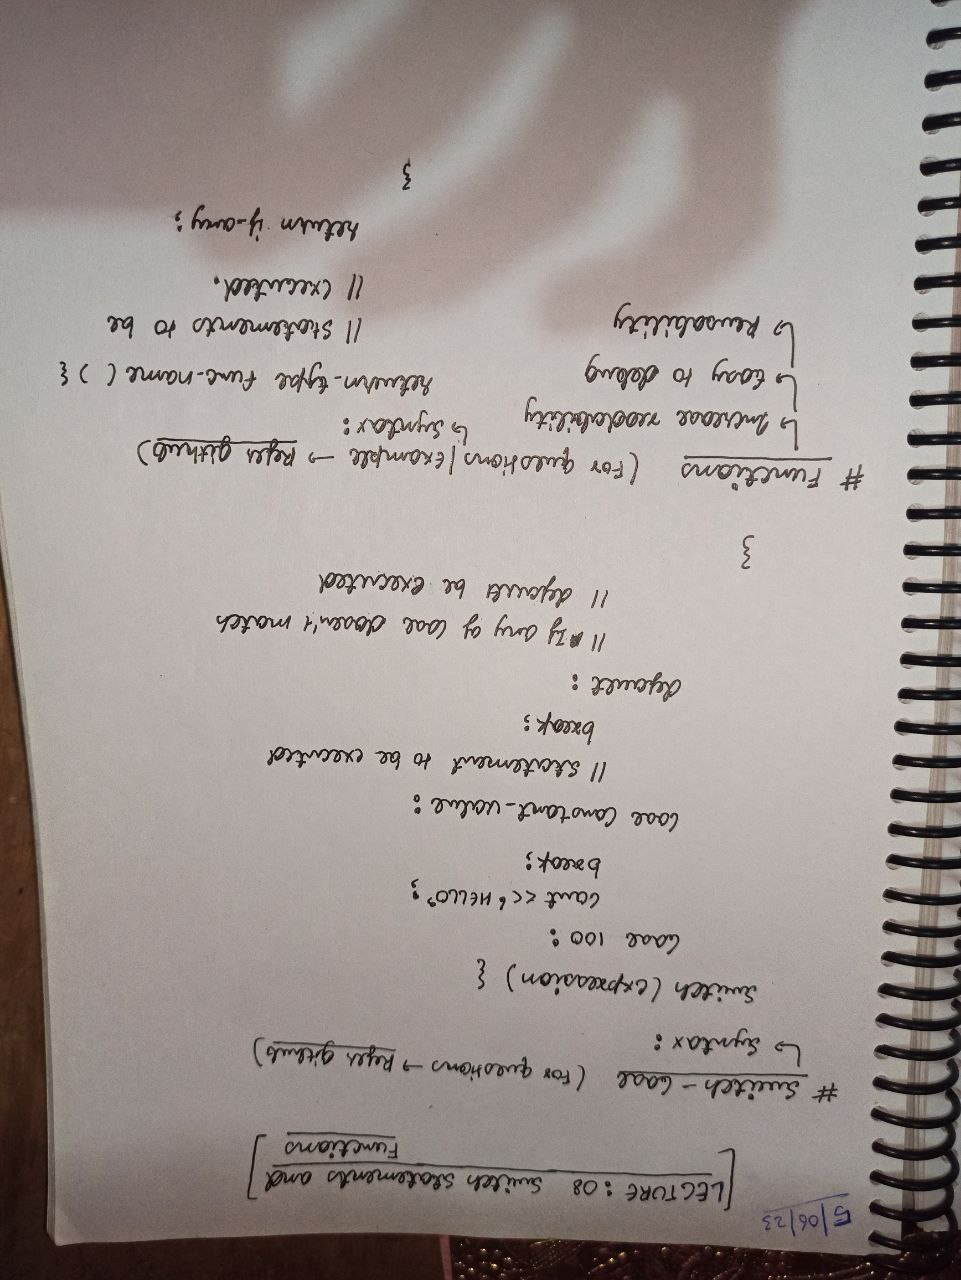 5/06/23
[LECTURE : 08 Switch Statements and
Functions]
# Switch - Case (For questions → Refer github)
↳ Syntax :
Switch (expression) {
Case 100 :
cout << "HELLO";
break;
Case Constant-value :
// Statement to be executed
break;
default :
// If any of case doesn't match
// default be executed
}
# Functions (For questions / Example → Refer github)
↳ Increase readability
↳ Easy to debug
↳ Reusability
↳ Syntax :
return-type func-name ( ) {
// Statements to be
// executed.
return if-any ;
}